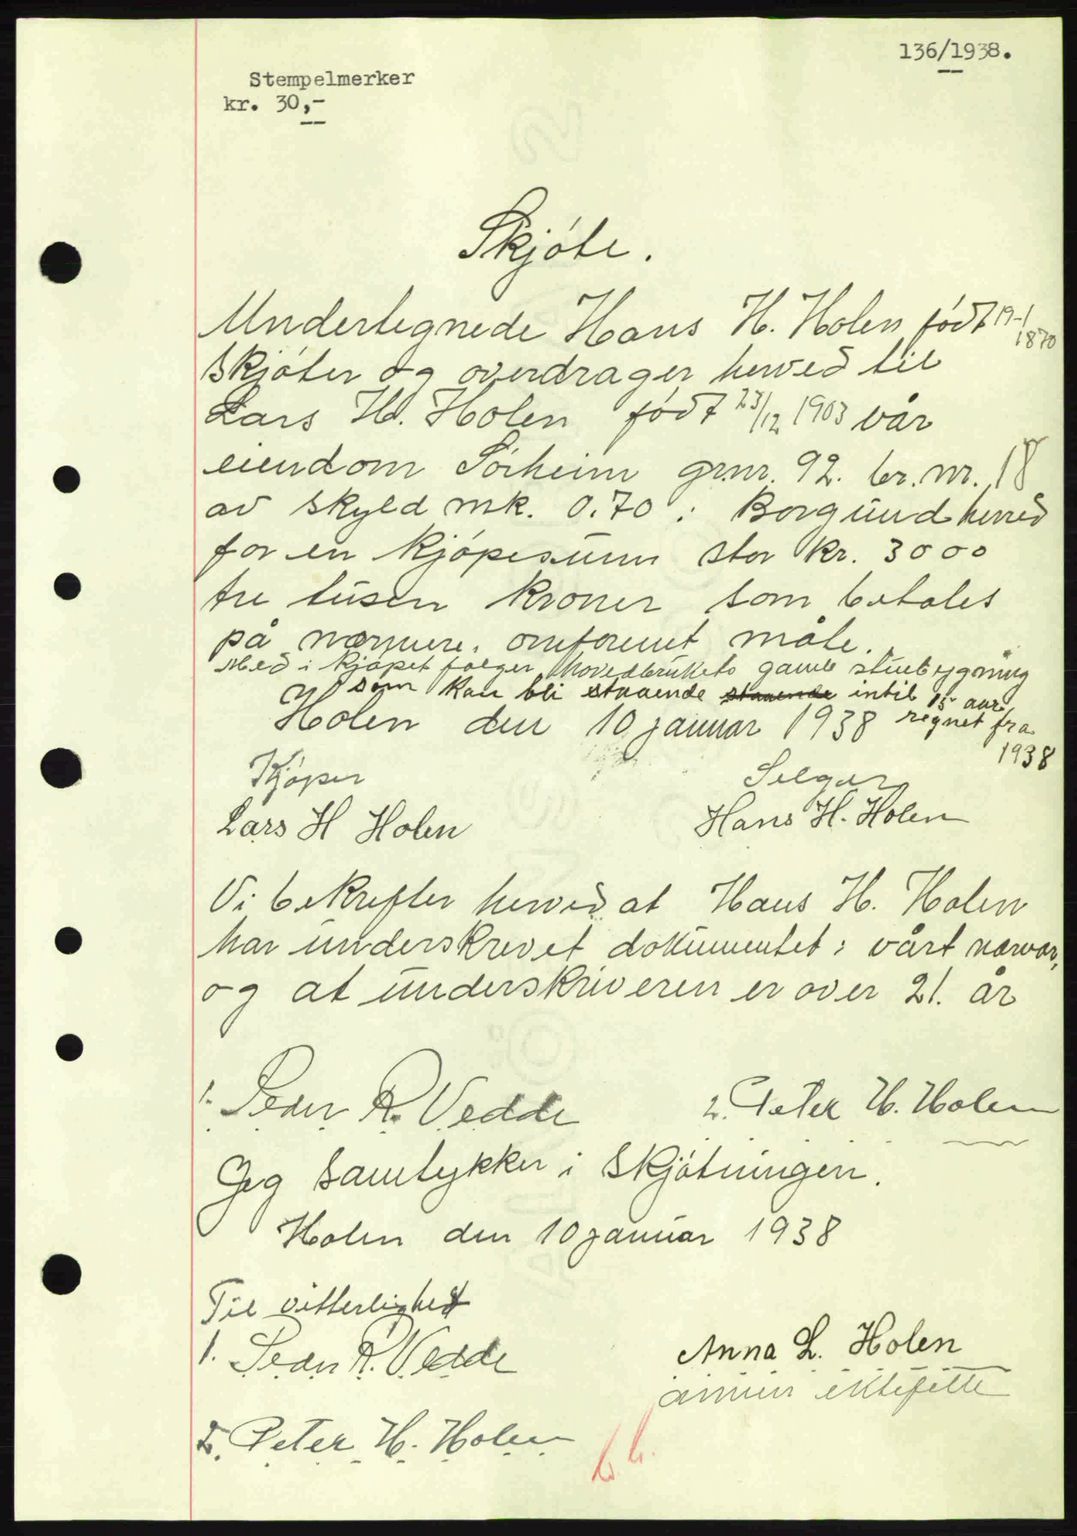 136/1938.
Stempelmerker
kr. 30,-
Skjöte.
Undertegnede Hans H. Holen född 19-1 1870
skjöter og overdrager herved til
Lars H. Holen född 23/12 1903 vår
eiendom Sörheim grnr. 92. br. nr. 18
av skyld mk. 0.70 i Borgund herred
for en kjöpesum stor kr. 3000
tre tusen kroner som betales
på nærmere omforenet måte.
Med i kjöpet fölger hovedbrukets gamle stuebygning
som kan bli staaende staaende intil 15 aar
regnet fra
1938
Holen den 10 januar 1938
Kjöper
Selger
Lars H Holen
Hans H. Holen
Vi bekrefter herved at Hans H. Holen
har underskrevet dokumentet i vårt nærvær,
og at underskriveren er over 21. år
1. Peder R. Vedde
2. Peter H. Holen
Jeg samtykker i skjötningen.
Holen den 10 januar 1938
Til vitterlighet
1. Peder R. Vedde
Anna L. Holen
ektefelle
2. Peter H. Holen